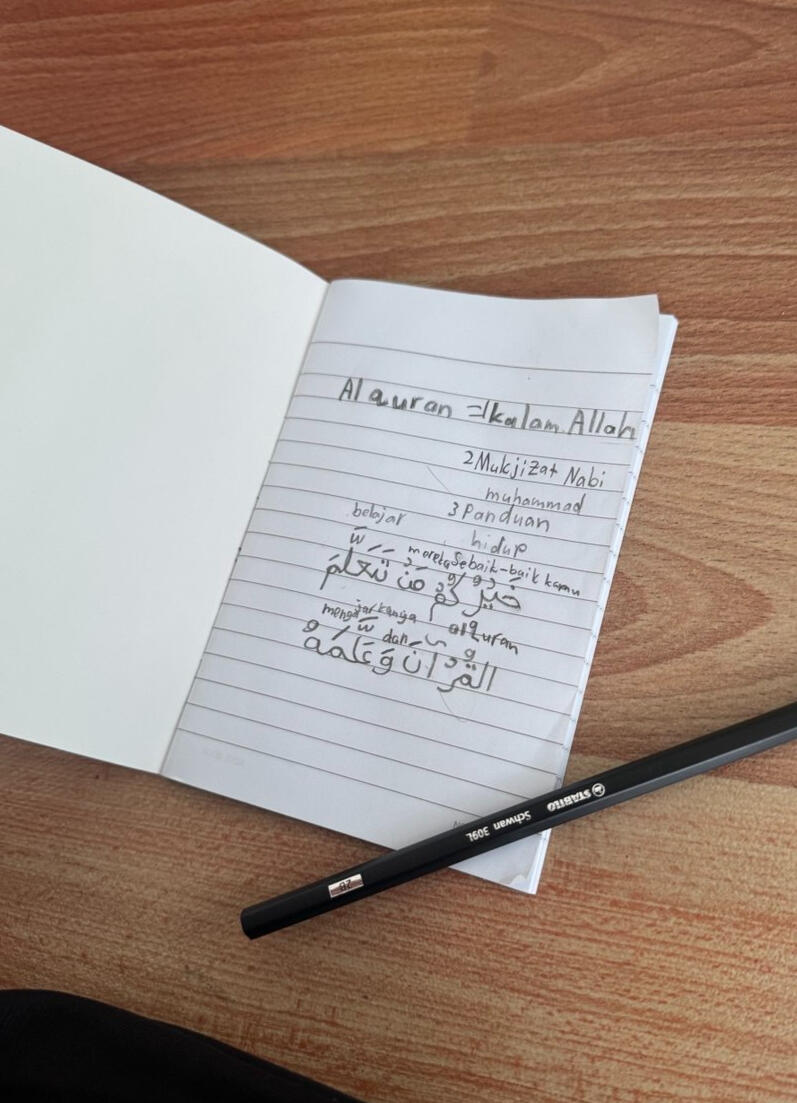 Al quran =1kalam Allah
2Mukjizat Nabi
muhammad
3 Panduan
hidup
belajar mereka Sebaik-baik kamu
خَيْرُكُمْ مَنْ تَعَلَّمَ
mengajarkanya dan alquran
القُرْانَ وَعَلَّمَهُ
STABILO Schwan 309L
2B